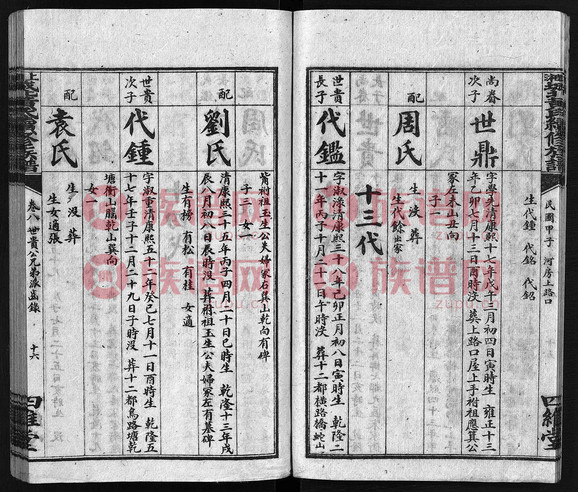 民國甲子 河房上路口
四維堂
生代鐘 代銘 代銘
尚春
次子
世鼎
字學先清康熙十七年戊午三月初四日寅時生 雍正十三
年乙卯七月十一日酉時沒 葬上路口屋上手祔祖應箕公
冢左未山丑向
配
周氏
生 沒 葬
子二 生代餘出家
十三代
世貴
長子
代鑑
字淑滌清康熙三十八年己卯正月初八日寅時生 乾隆二
十一年丙子十月二十一日午時沒 葬十二都橫路橋蛇山
背祔祖玉生公夫婦冢右巽山乾向有碑
子二 女一
配
劉氏
清康熙三十五年丙子四月二十日巳時生 乾隆十三年戊
辰八月初八日辰時沒 葬祔祖玉生公夫婦冢左有墓碑
生有揚 有松 有桂 女適
世貴
次子
代鍾
字淑重清康熙五十二年癸巳七月十一日酉時生 乾隆五
十七年壬子十二月二十九日子時沒 葬十二都烏路塘乾
塘衝山腦乾山巽向
女一
配
袁氏
生 沒 葬
生女適張
卷八世貴公兄弟派齒錄
十六
四維堂
族譜网
族譜网